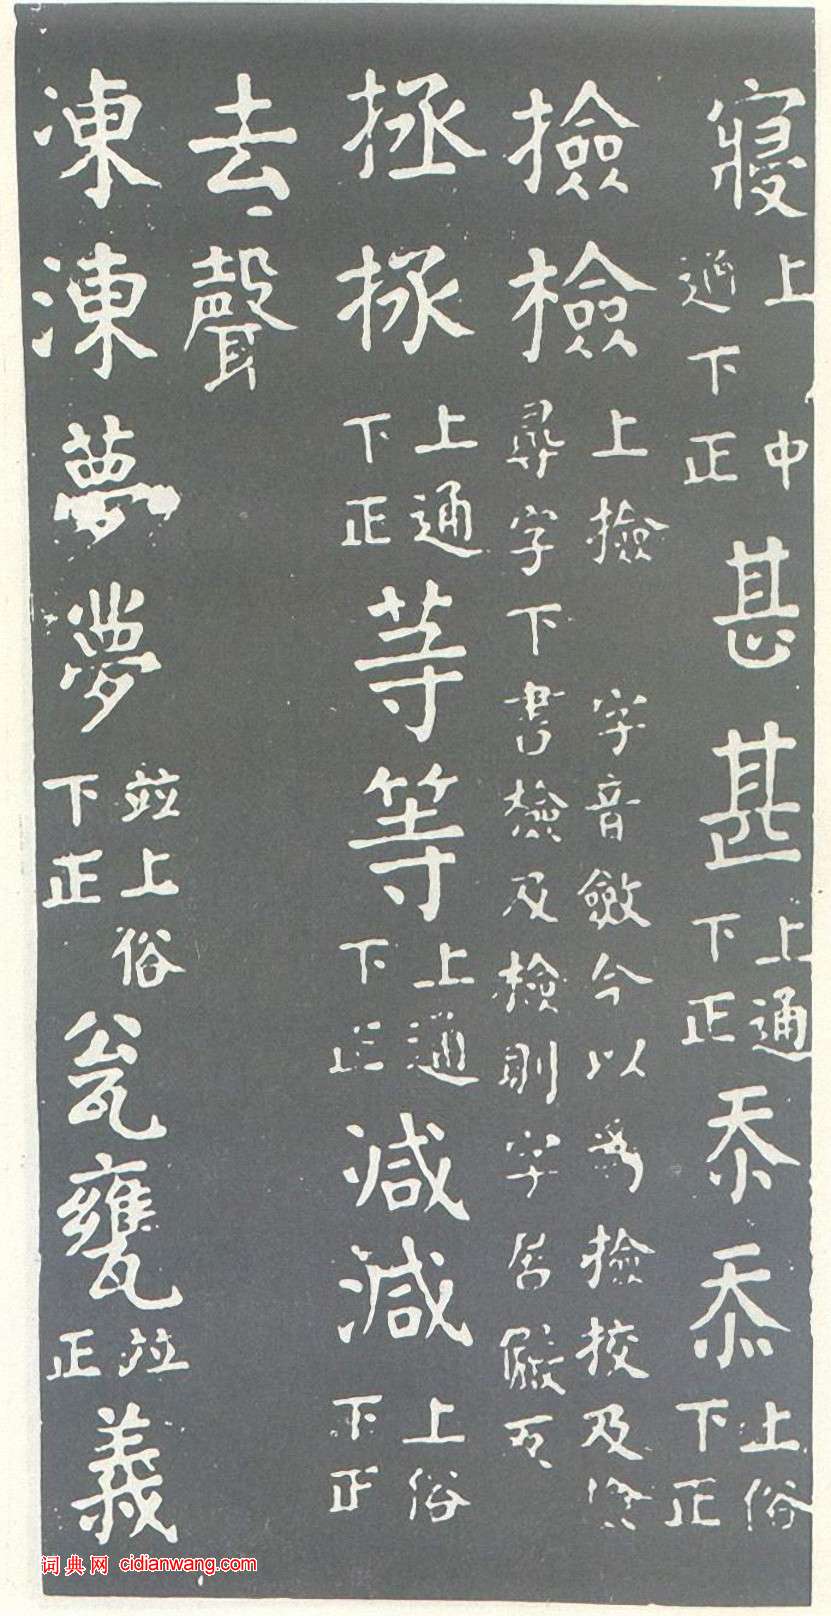 寢上中通下正甚甚上通下正忝忝上俗下正
撿檢上撿字音斂今以為撿挍及
尋字下書檢及檢則字
拯拯上通下正䓁等上通下正减減上俗下正
去聲
凍涷夢夢並上俗下正瓮甕並正義
词典网 cidianwang.com